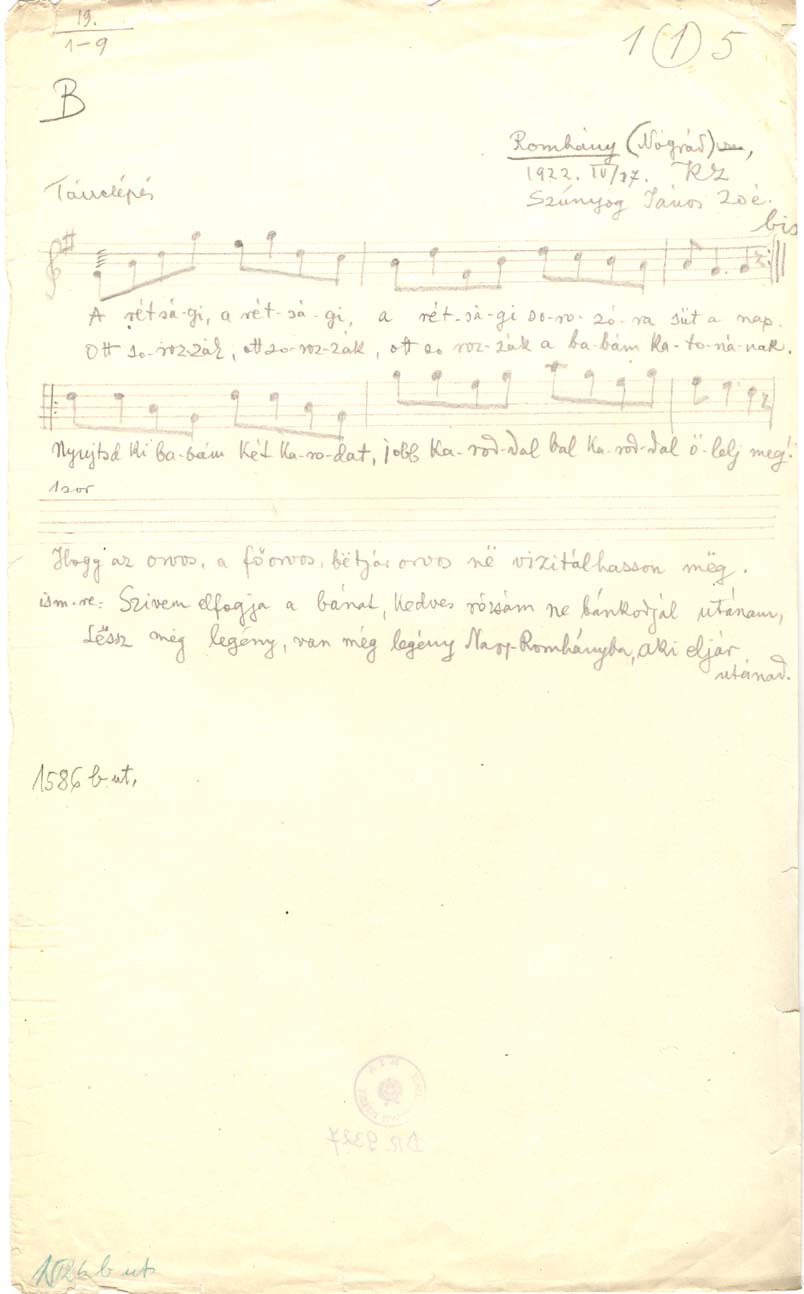 19.
1-9
1 (1) 5
B
Romhány (Nógrád),
1922. IV/27. KZ
Tánclépés
Szúnyog János 20 é.
bis
A rétsá-gi, a rét-sá-gi, a rét-sá-gi so-ro-zó-ra süt a nap.
Ott so-roz-zák, ott so-roz-zák, ott so roz-zák a ba-bám ka-to-ná-nak.
Nyujtsd ki ba-bám két ka-ro-dat, jobb ka-rod-dal bal ka-rod-dal ö-lelj meg!
1szor
Hogy az orvos, a főorvos, bëtjár orvos në vizitálhasson mëg.
ism. re: Szivem elfogja a bánat, kedves rózsám ne bánkodjál utánam,
Lëssz még legény, van még legény Nagy-Romhányba, aki eljár
utánad.
1586 b ut.
DR 9327
b ut